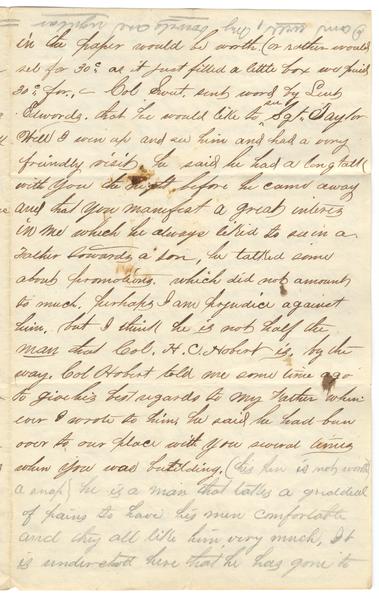 in the paper would be worth (or rather would
sel for 30c as it just filled a little box we paid
30c for, Col Sweet sent word by Leut
Edwards. that he would like to see Sgt. Taylor
Well I wen up and see him and had a very
friendly visit he said he had a long talk
with You the night before he came away
and that You manifest a great interes
in me which he always liked to see in a
Father towards a son, he talked some
about promotions. which did not amount
to much, perhaps I am prejudice against
him, but I think he is not half the
man that Col. H. C. Hobert is, by the
way. Col Hobert told me some time ago
to give his best regards to my Father when
ever I wrote to him, he said he had ben
over to our place with you several times
when you was building. (this pen is not worth
a snap) he is a man that takes a grald deal
of pains to have his men comfortable
and they all like him very much, It
is understood here that he has gone to